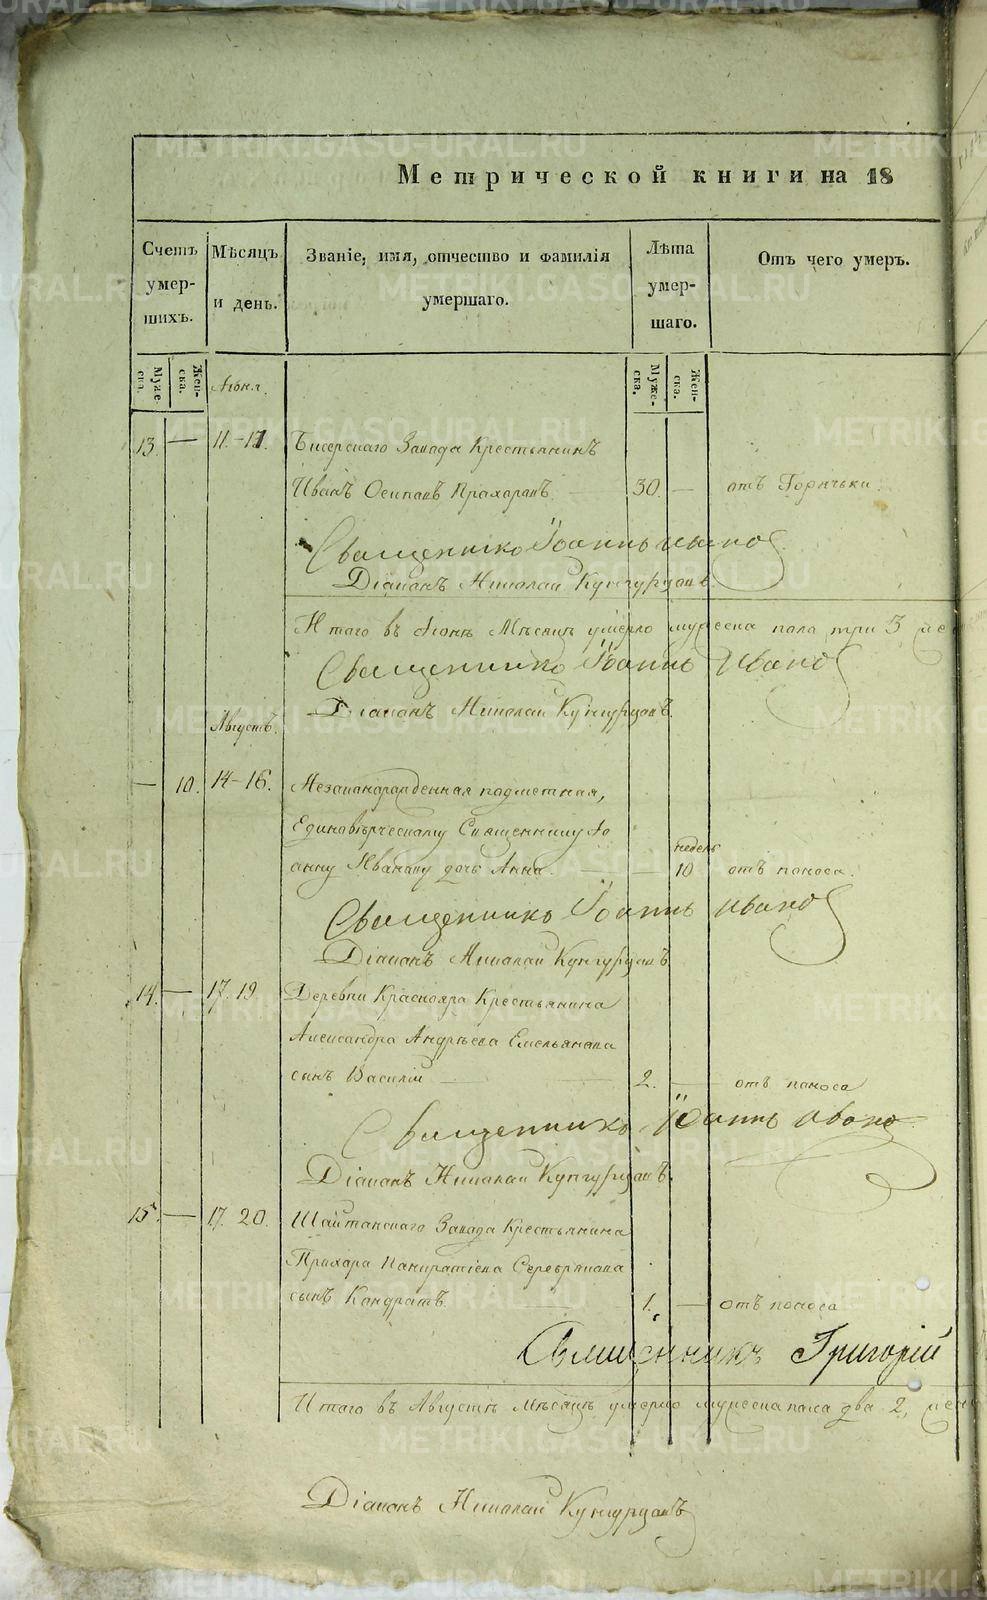 Метрической книги на 18
Счетъ умер- шихъ.
Мѣсяцъ и день.
Званіе, имя, отчество и фамилія умершаго.
Лѣта умер- шаго.
Отъ чего умеръ.
Муже- ска.
Жен- ска.
Муже- ска.
Жен- ска.
13. — 11.-17. Бисерскаго Завода Крестьянинъ
Иванъ Осиповъ Прохоровъ — 30. — отъ Горячьки.
Священникъ Іоаннъ Ивано
Діаконъ Николай Кунгурцовъ.
Итого въ Іюнѣ Мѣсяцѣ умерло мужеска пола три 3,
Священникъ Іоаннъ Ивано
Діаконъ Николай Кунгурцовъ
Августъ.
— 10. 14-16. Незаконнорожденная подметная,
Единовѣрческому Священнику Іо
анну Иванову дочь Анна. — — недель 10 отъ поноса.
Священникъ Іоаннъ Ивано
Діаконъ Николай Кунгурцовъ
14. — 17. 19 Деревни Краснояра Крестьянина
Александра Андрѣева Емельянова
сынъ Василій — 2. — отъ поноса
Священникъ Іоаннъ Ивано
Діаконъ Николай Кунгурцовъ.
15. — 17. 20. Шайтанскаго Завода Крестьянина
Прохора Панкратіева Серебрякова
сынъ Кондратъ. — 1. — отъ поноса
Священникъ Григорій
Итого въ Августѣ Мѣсяцѣ умерло мужеска пола два 2,
Діаконъ Николай Кунгурцовъ
METRIKI.GASO-URAL.RU